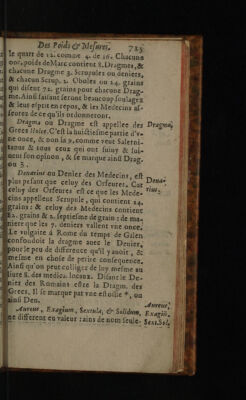 Des Poids & Mesures, 725
le quart de 12. comme 4. de 16. Chacune
onc, poids de Marc contient 8. Dragmes, &
chacune Dragme 3. Scrupules ou deniers,
& chacun Scrup. 2. Oboles ou 24. grains
qui disent 72. grains pour chacune Drag-
me. Ainsi faisant seront beaucoup soulagez
& leur esprit en repos, & les Medecins as-
seurez de ce qu'ils ordonneront.
Dragma ou Dragme est appellee des Dragma,
Grecs . C'est la huictiesme partie d'v-
ne once, & non la 9. comme veut Salerni-
tanus & tous ceux qui ont suiuy & sui-
uent son opinon, & se marque ainsi Drag.
ou 3.
Denarius ou Denier des Medecins, est
plus pesant que celuy des Orfeures. Car Dena-
celuy des Orfeures est ce que les Mede- rius.
cins appellent Scrupule, qui contient 24.
grains: & celuy des Medecins contient
12. grains & 2. septiesme de grain: de ma-
niere que les 7. deniers vallent vne once.
Le vulgaire à Rome du temps de Galen
confondoit la dragme auec le Denier,
pour le peu de difference qu'il y auoit, &
mesme en chose de petite consequence.
Ainsi qu'on peut colliger de luy mesme au
liure 8. des medica. locaux. Disant le De-
nier des Romains estre la Dragm. des
Grecs. Il se marque par vne estoille *, ou
ainsi Den.
Aureus, Exagium, Sextula, & Solidum, Aureus,
ne different en valeur: ains de nom seule- Exagiũ.
Sext. Sol.